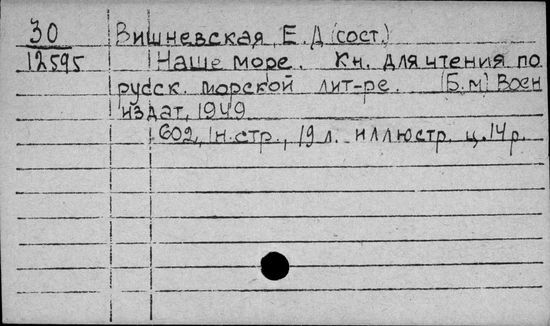 30 Вишневская, Е. Д (сост.)
12595 Наше море. Кн. для чтения по
русск. морской лит-ре. (Б. м) Воен
издат, 1949
602, 1н. стр., 19 л. иллюстр. ц. 14 р.